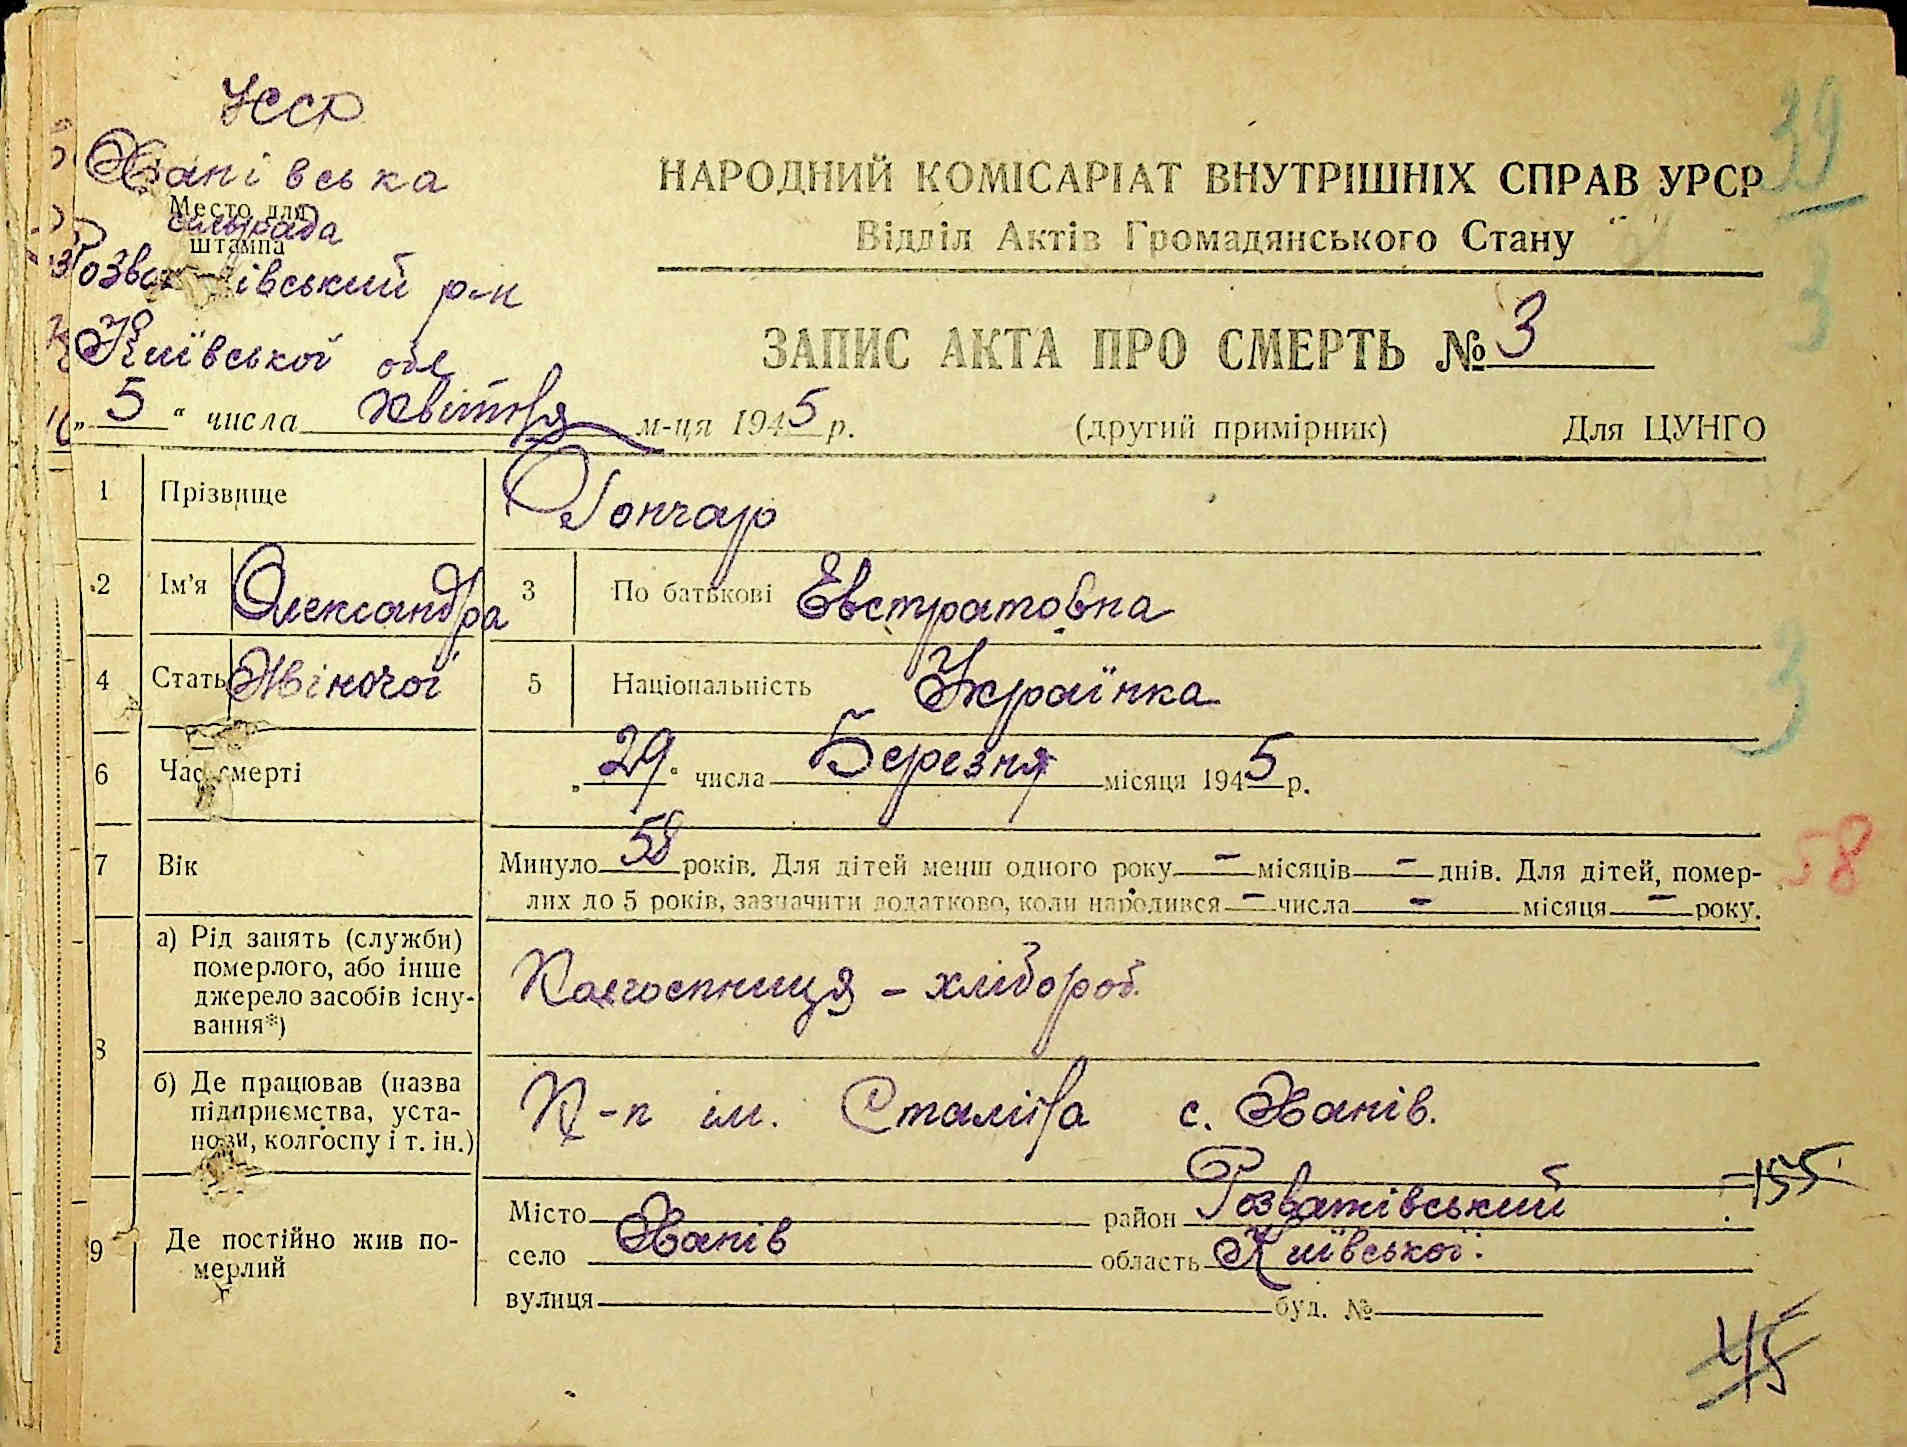 УССР
Ханівська
Место для
сільрада
штампа
Розважівський р-н
Київської обл
39
3
НАРОДНИЙ КОМІСАРІАТ ВНУТРІШНІХ СПРАВ УРСР
Відділ Актів Громадянського Стану
ЗАПИС АКТА ПРО СМЕРТЬ № 3
„ 5 “ числа Квітня м-ця 1945 р. (другий примірник) Для ЦУНГО
1 Прізвище Гончар
2 Ім'я Олександра 3 По батькові Евстратовна
4 Стать Жіночої 5 Національність Українка
3
6 Час смерті „ 29 “ числа Березня місяця 1945 р.
7 Вік Минуло 58 років. Для дітей менш одного року — місяців — днів. Для дітей, помер-
лих до 5 років, зазначити додатково, коли народився — числа — місяця — року.
58
8 а) Рід занять (служби)
померлого, або інше
джерело засобів існу-
вання*)
Колгоспниця - хлібороб.
б) Де працював (назва
підприємства, уста-
нови, колгоспу і т. ін.)
К-п ім. Сталіна с. Ханів.
155
9 Де постійно жив по-
мерлий
Місто район Розважівський
село Ханів область Київської
вулиця буд. №
45